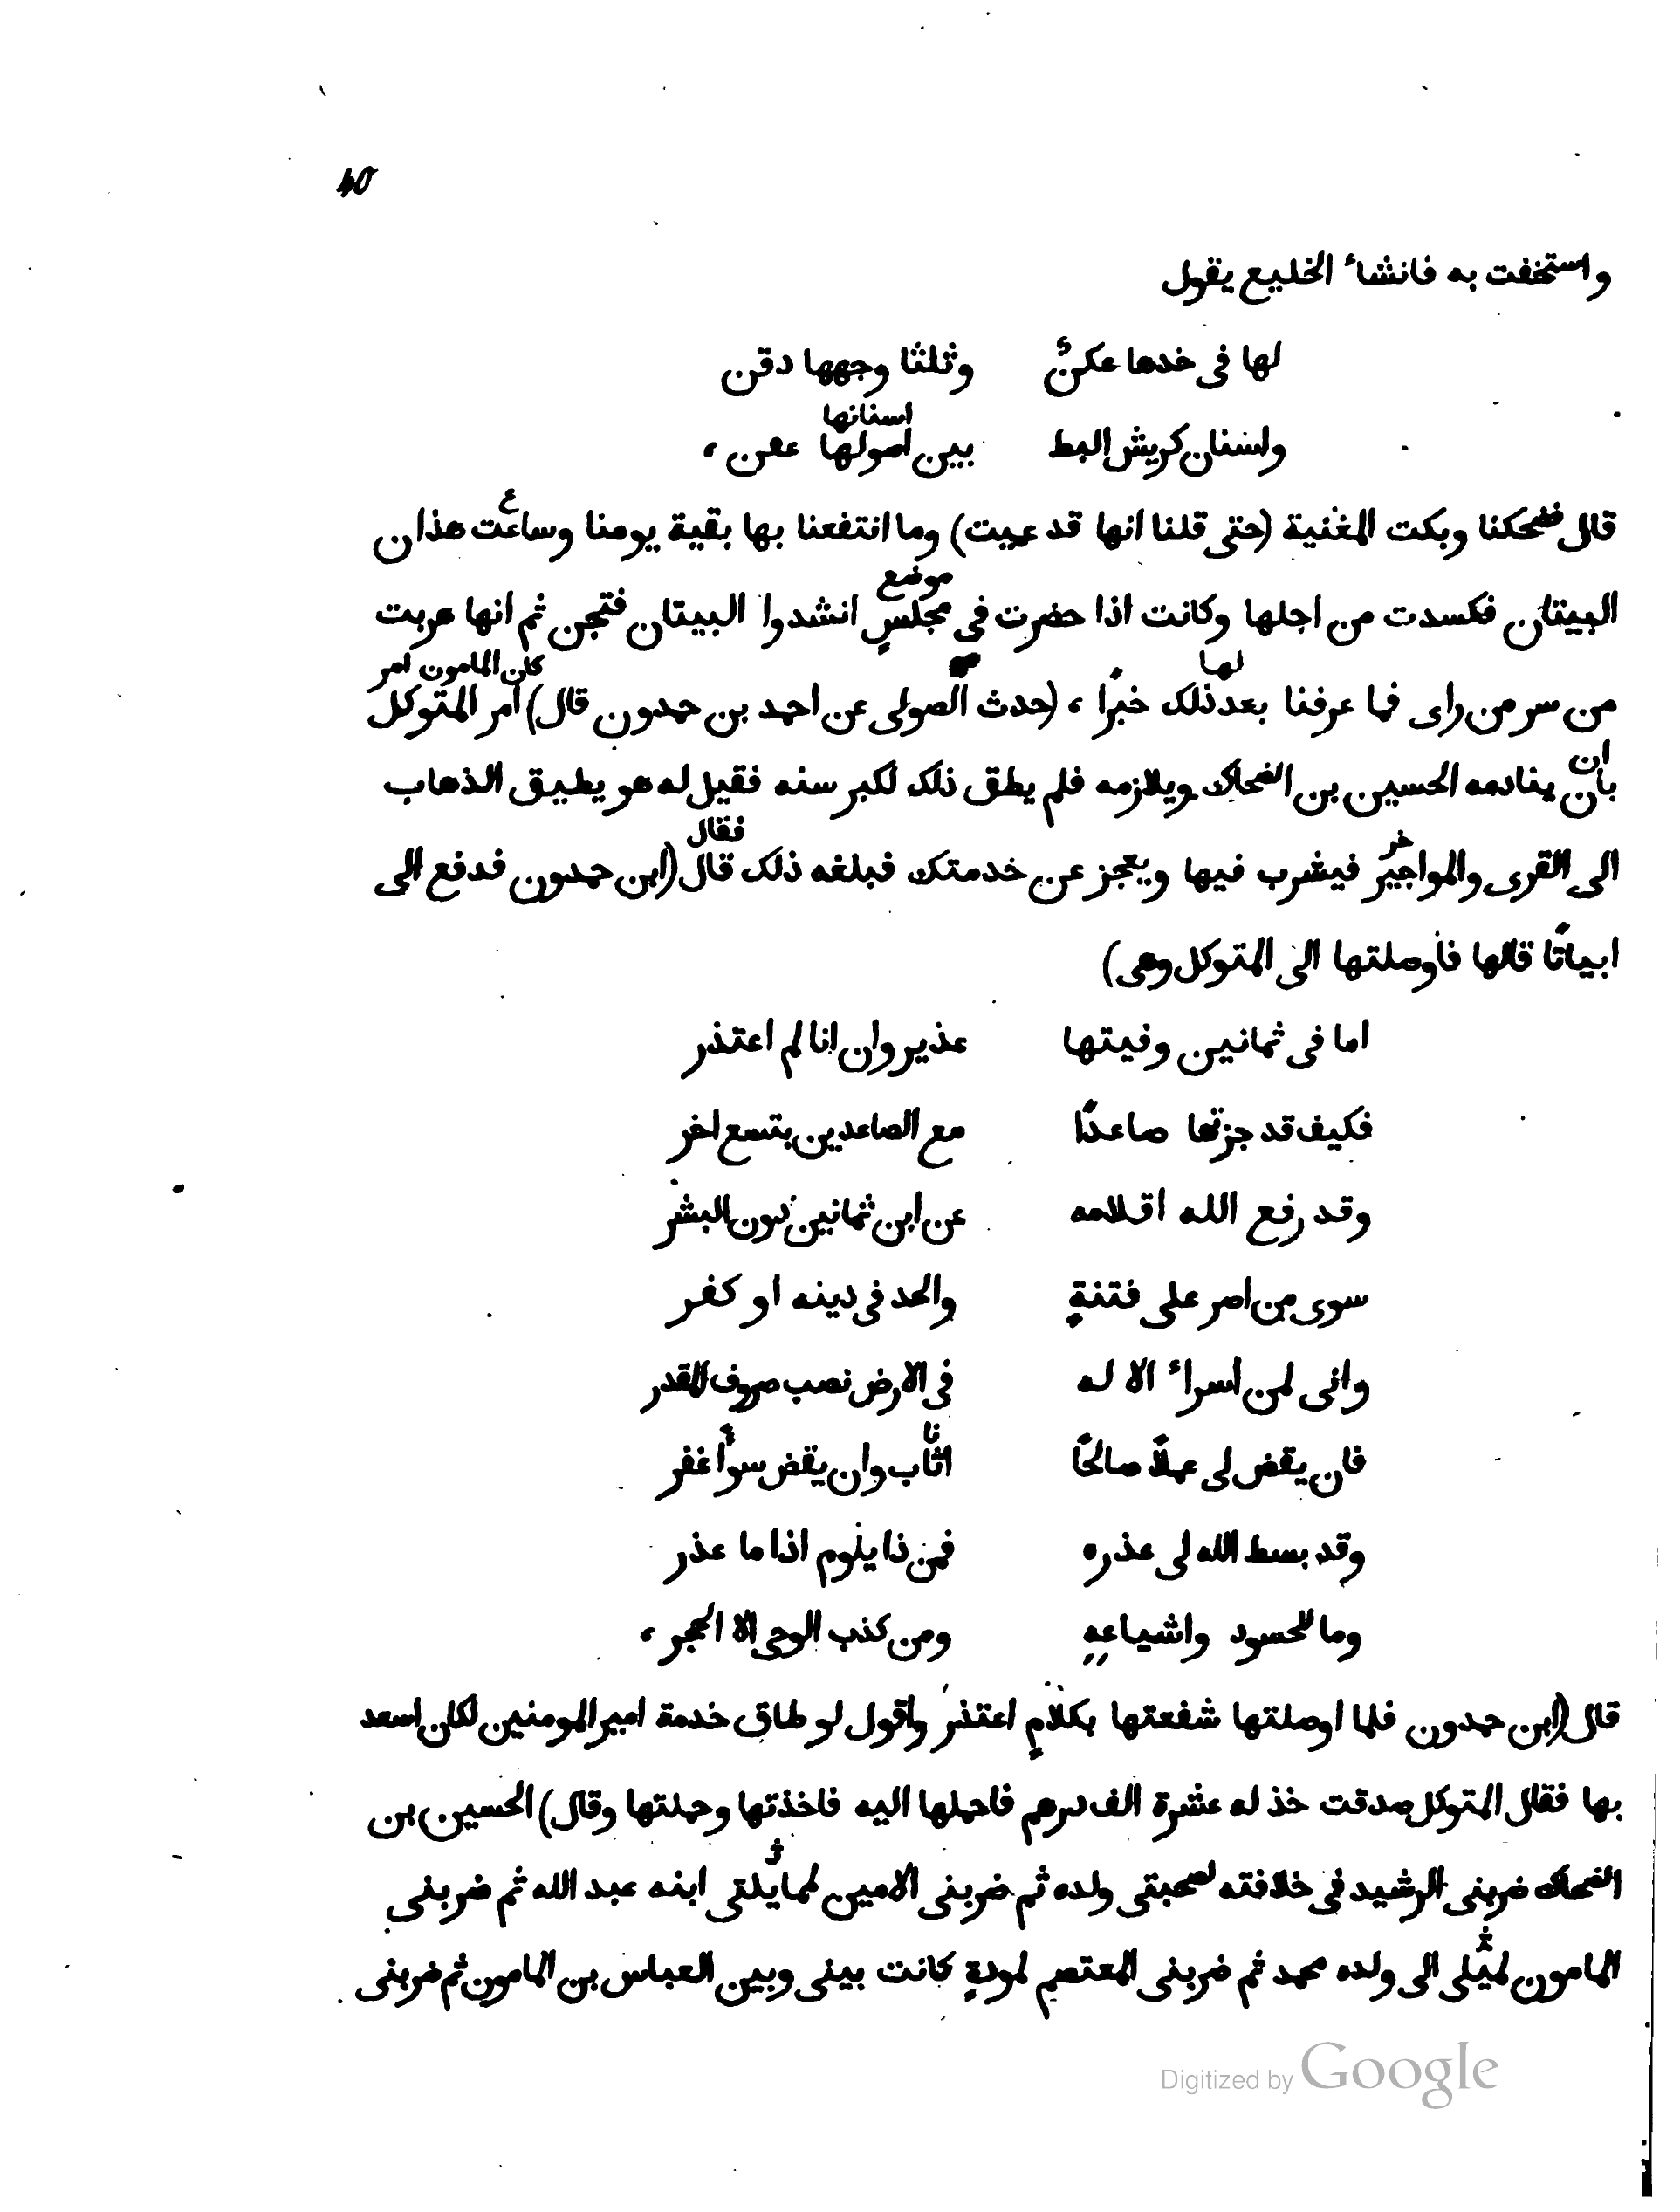 40
واستخفت به فانشاء الخليع يقول
لها فى خدها عكنٌ وثلثا وجهها دقن
اسنانها
واسنان كريش البط بين اصولها عفن ،
قال فضحكنا وبكت المغنية (حتى قلنا انها قد عميت) وما انتفعنا بها بقية يومنا وساعت هذان
موضع
البيتان فكسدت من اجلها وكانت اذا حضرت فى مجلسٍ انشدوا البيتان فتجن ثم انها هربت
لها كان المامون امر
من سر من راى فما عرفنا بعد ذلك خبرًا ، (حدث الصولى عن احمد بن حمدون قال) امر المتوكل
ان
بان ينادمه الحسين بن الضحاك ويلازمه فلم يطق ذلك لكبر سنه فقيل له هو يطيق الذهاب
خر فقال
الى القرى والمواجير فيشرب فيها ويعجز عن خدمتك فبلغه ذلك قال (ابن حمدون فدفع الى
ابياتًا قالها فاوصلتها الى المتوكل وهى)
اما فى ثمانين وفيتها عذير وان انا لم اعتذر
فكيف قد جزتها صاعدًا مع الصاعدين بتسع اخر
وقد رفع الله اقلامه عن ابن ثمانين دون البشر
سوى من اصر على فتنةٍ والحد فى دينه او كفر
وانى لمن اسراء الا له فى الارض نصب صروف القدر
نا
فان يقض لى عملًا صالحًا اثاب وان يقض سوأ غفر
وقد بسط الله لى عذره فمن ذا يلوم اذا ما عذر
وما للحسود واشياعهِ ومن كذب الوحى الا الحجر ،
قال (ابن حمدون فلما اوصلتها شفعتها بكلامٍ اعتذر واقول لو طاق خدمة امير المومنين لكان اسعد
بها فقال المتوكل صدقت خذ له عشرة الف درهم فاحملها اليه فاخذتها وحملتها وقال) الحسين بن
الضحاك ضربنى الرشيد فى خلافته لصحبتى ولده ثم ضربنى الامين لممايلتى ابنه عبد الله ثم ضربنى
المامون لميلى الى ولده محمد ثم ضربنى المعتصم لمودةٍ كانت بينى وبين العباس بن المامون ثم ضربنى
Digitized by Google